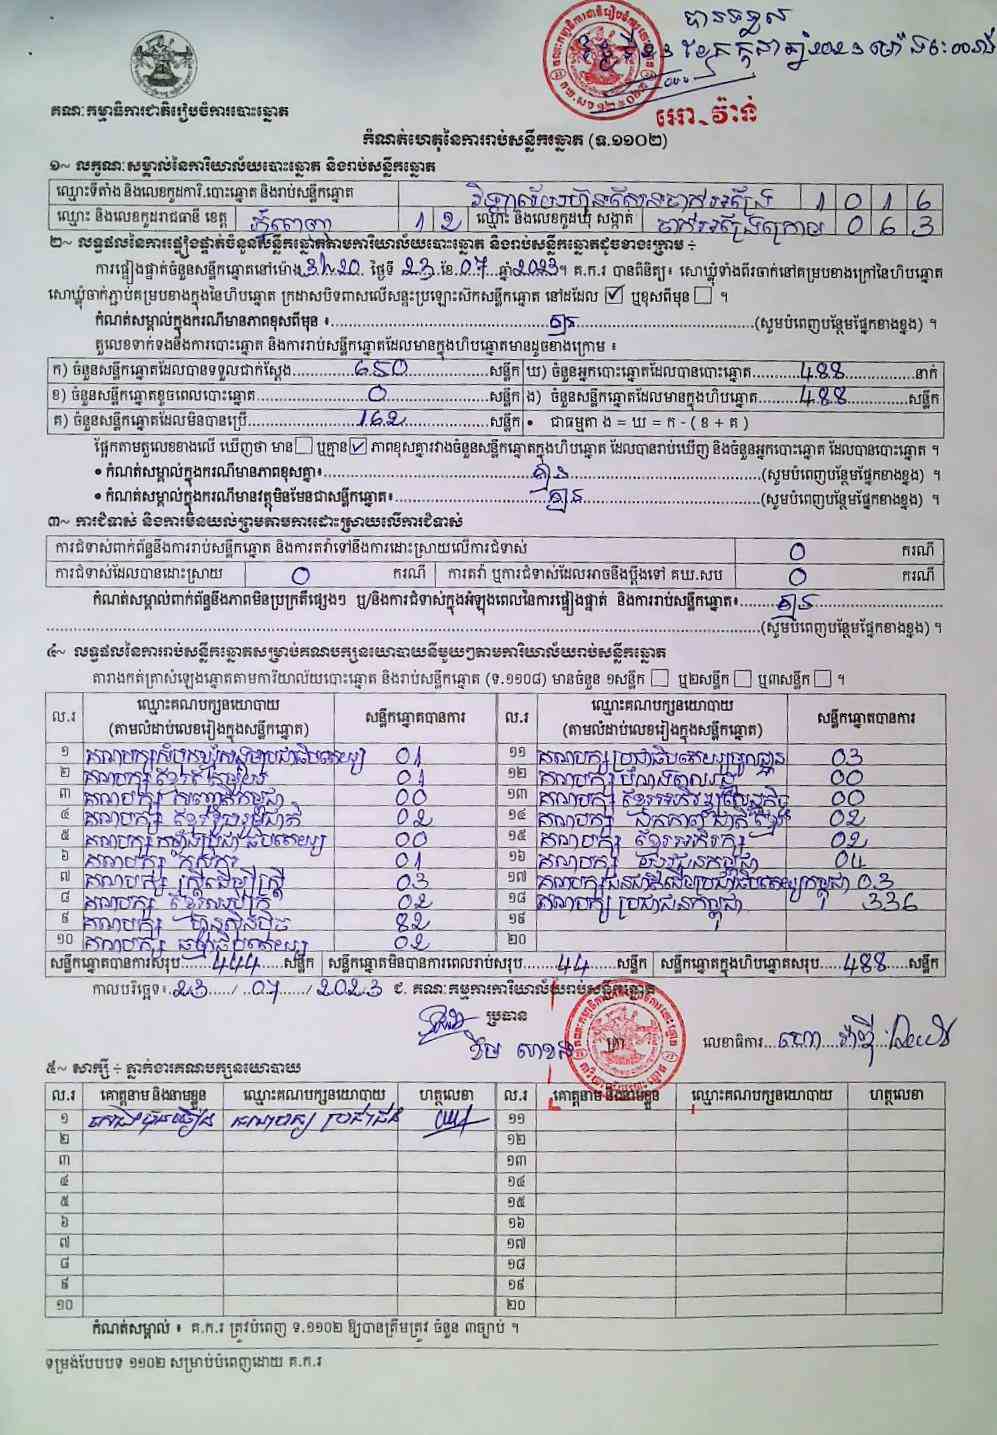 បានទទួល
គណៈកម្មាធិការជាតិរៀបចំការបោះឆ្នោត
អោ វ៉ាន់
កំណត់ហេតុនៃការរាប់សន្លឹកឆ្នោត (ទ.១១០២)
១~ លក្ខណៈសម្គាល់នៃការិយាល័យបោះឆ្នោត និងរាប់សន្លឹកឆ្នោត
ឈ្មោះទីតាំង និងលេខកូដការិ.បោះឆ្នោត និងរាប់សន្លឹកឆ្នោត 1 0 1 6
ឈ្មោះ និងលេខកូដរាជធានី ខេត្ត ភ្នំពេញ 1 2 ឈ្មោះ និងលេខកូដឃុំ សង្កាត់ ចាក់អង្រែក្រោម 0 6 3
២~ លទ្ធផលនៃការផ្ទៀងផ្ទាត់ចំនួនសន្លឹកឆ្នោតតាមការិយាល័យបោះឆ្នោត និងរាប់សន្លឹកឆ្នោតដូចខាងក្រោម ÷
ការផ្ទៀងផ្ទាត់ចំនួនសន្លឹកឆ្នោតនៅម៉ោង 3h20 ថ្ងៃទី 23 ខែ 07 ឆ្នាំ 2023 ។ គ.ក.រ បានពិនិត្យ៖ សោឃ្លុំទាំងពីរចាក់នៅគម្របខាងក្រៅនៃហិបឆ្នោត
សោឃ្លុំចាក់ភ្ជាប់គម្របខាងក្នុងនៃហិបឆ្នោត ក្រដាសបិទពាសលើសន្ទះប្រឡោះស៊កសន្លឹកឆ្នោត នៅដដែល ☑ ឬខុសពីមុន ☐ ។
កំណត់សម្គាល់ក្នុងករណីមានភាពខុសពីមុន ៖ គ្មាន (សូមបំពេញបន្ថែមផ្នែកខាងខ្នង) ។
តួលេខទាក់ទងនឹងការបោះឆ្នោត និងការរាប់សន្លឹកឆ្នោតដែលមានក្នុងហិបឆ្នោតមានដូចខាងក្រោម ៖
ក) ចំនួនសន្លឹកឆ្នោតដែលបានទទួលជាក់ស្តែង 650 សន្លឹក ឃ) ចំនួនអ្នកបោះឆ្នោតដែលបានបោះឆ្នោត 488 នាក់
ខ) ចំនួនសន្លឹកឆ្នោតខូចពេលបោះឆ្នោត 0 សន្លឹក ង) ចំនួនសន្លឹកឆ្នោតដែលមានក្នុងហិបឆ្នោត 488 សន្លឹក
គ) ចំនួនសន្លឹកឆ្នោតដែលមិនបានប្រើ 162 សន្លឹក • ជាធម្មតា ង = ឃ = ក - ( ខ + គ )
ផ្អែកតាមតួលេខខាងលើ ឃើញថា មាន ☐ ឬគ្មាន ☑ ភាពខុសគ្នារវាងចំនួនសន្លឹកឆ្នោតក្នុងហិបឆ្នោត ដែលបានរាប់ឃើញ និងចំនួនអ្នកបោះឆ្នោត ដែលបានបោះឆ្នោត ។
• កំណត់សម្គាល់ក្នុងករណីមានភាពខុសគ្នា៖ គ្មាន (សូមបំពេញបន្ថែមផ្នែកខាងខ្នង) ។
• កំណត់សម្គាល់ក្នុងករណីមានវត្ថុមិនមែនជាសន្លឹកឆ្នោត៖ គ្មាន (សូមបំពេញបន្ថែមផ្នែកខាងខ្នង) ។
៣~ ការជំទាស់ និងការមិនយល់ព្រមតាមការដោះស្រាយលើការជំទាស់
ការជំទាស់ពាក់ព័ន្ធនឹងការរាប់សន្លឹកឆ្នោត និងការតវ៉ាទៅនឹងការដោះស្រាយលើការជំទាស់ 0 ករណី
ការជំទាស់ដែលបានដោះស្រាយ 0 ករណី ការតវ៉ា ឬការជំទាស់ដែលអាចនឹងប្តឹងទៅ គឃ.សប 0 ករណី
កំណត់សម្គាល់ពាក់ព័ន្ធនឹងភាពមិនប្រក្រតីផ្សេងៗ ឬ/និងការជំទាស់ក្នុងអំឡុងពេលនៃការផ្ទៀងផ្ទាត់ និងការរាប់សន្លឹកឆ្នោត៖ គ្មាន
(សូមបំពេញបន្ថែមផ្នែកខាងខ្នង) ។
៤~ លទ្ធផលនៃការរាប់សន្លឹកឆ្នោតសម្រាប់គណបក្សនយោបាយនីមួយៗតាមការិយាល័យរាប់សន្លឹកឆ្នោត
តារាងកត់ត្រាសំឡេងឆ្នោតតាមការិយាល័យបោះឆ្នោត និងរាប់សន្លឹកឆ្នោត (ទ.១១០៨) មានចំនួន ១សន្លឹក ☐ ឬ២សន្លឹក ☐ ឬ៣សន្លឹក ☐ ។
ល.រ ឈ្មោះគណបក្សនយោបាយ (តាមលំដាប់លេខរៀងក្នុងសន្លឹកឆ្នោត) សន្លឹកឆ្នោតបានការ ល.រ ឈ្មោះគណបក្សនយោបាយ (តាមលំដាប់លេខរៀងក្នុងសន្លឹកឆ្នោត) សន្លឹកឆ្នោតបានការ
១ គណបក្ស 01 ១១ គណបក្ស ប្រជាធិបតេយ្យមូលដ្ឋាន 03
២ គណបក្ស 01 ១២ គណបក្ស 00
៣ គណបក្ស 00 ១៣ គណបក្ស ខ្មែរអភិវឌ្ឍន៍សេដ្ឋកិច្ច 00
៤ គណបក្ស ខ្មែររួបរួមជាតិ 02 ១៤ គណបក្ស ឯកភាពជាតិខ្មែរ 02
៥ គណបក្ស កម្លាំងប្រជាធិបតេយ្យ 00 ១៥ គណបក្ស ខ្មែរអភិរក្ស 02
៦ គណបក្ស កសិករ 01 ១៦ គណបក្ស យុវជនកម្ពុជា 04
៧ គណបក្ស ស្ត្រីដើម្បីស្ត្រី 03 ១៧ គណបក្ស ជនជាតិដើមប្រជាធិបតេយ្យកម្ពុជា 03
៨ គណបក្ស 02 ១៨ គណបក្ស ប្រជាជនកម្ពុជា 336
៩ គណបក្ស ហ៊្វុនស៊ិនប៉ិច 82 ១៩
១០ គណបក្ស ធម្មាធិបតេយ្យ 02 ២០
សន្លឹកឆ្នោតបានការសរុប 444 សន្លឹក សន្លឹកឆ្នោតមិនបានការពេលរាប់សរុប 44 សន្លឹក សន្លឹកឆ្នោតក្នុងហិបឆ្នោតសរុប 488 សន្លឹក
កាលបរិច្ឆេទ៖ 23 / 07 / 2023 ជ. គណៈកម្មការការិយាល័យរាប់សន្លឹកឆ្នោត
ប្រធាន
លេខាធិការ
៥~ សាក្សី ÷ ភ្នាក់ងារគណបក្សនយោបាយ
ល.រ គោត្តនាម និងនាមខ្លួន ឈ្មោះគណបក្សនយោបាយ ហត្ថលេខា ល.រ គោត្តនាម និងនាមខ្លួន ឈ្មោះគណបក្សនយោបាយ ហត្ថលេខា
១ គណបក្ស ប្រជាជន ១១
២ ១២
៣ ១៣
៤ ១៤
៥ ១៥
៦ ១៦
៧ ១៧
៨ ១៨
៩ ១៩
១០ ២០
កំណត់សម្គាល់ ៖ គ.ក.រ ត្រូវបំពេញ ទ.១១០២ ឱ្យបានត្រឹមត្រូវ ចំនួន ៣ច្បាប់ ។
ទម្រង់បែបបទ ១១០២ សម្រាប់បំពេញដោយ គ.ក.រ